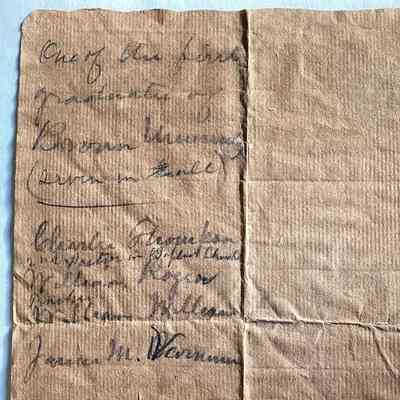 One of the first
graduates of
Brown University
(seven in all)
Charles Thompson
2nd pastor in Baptist Church
William Rogers
William Williams
James M. Varnum